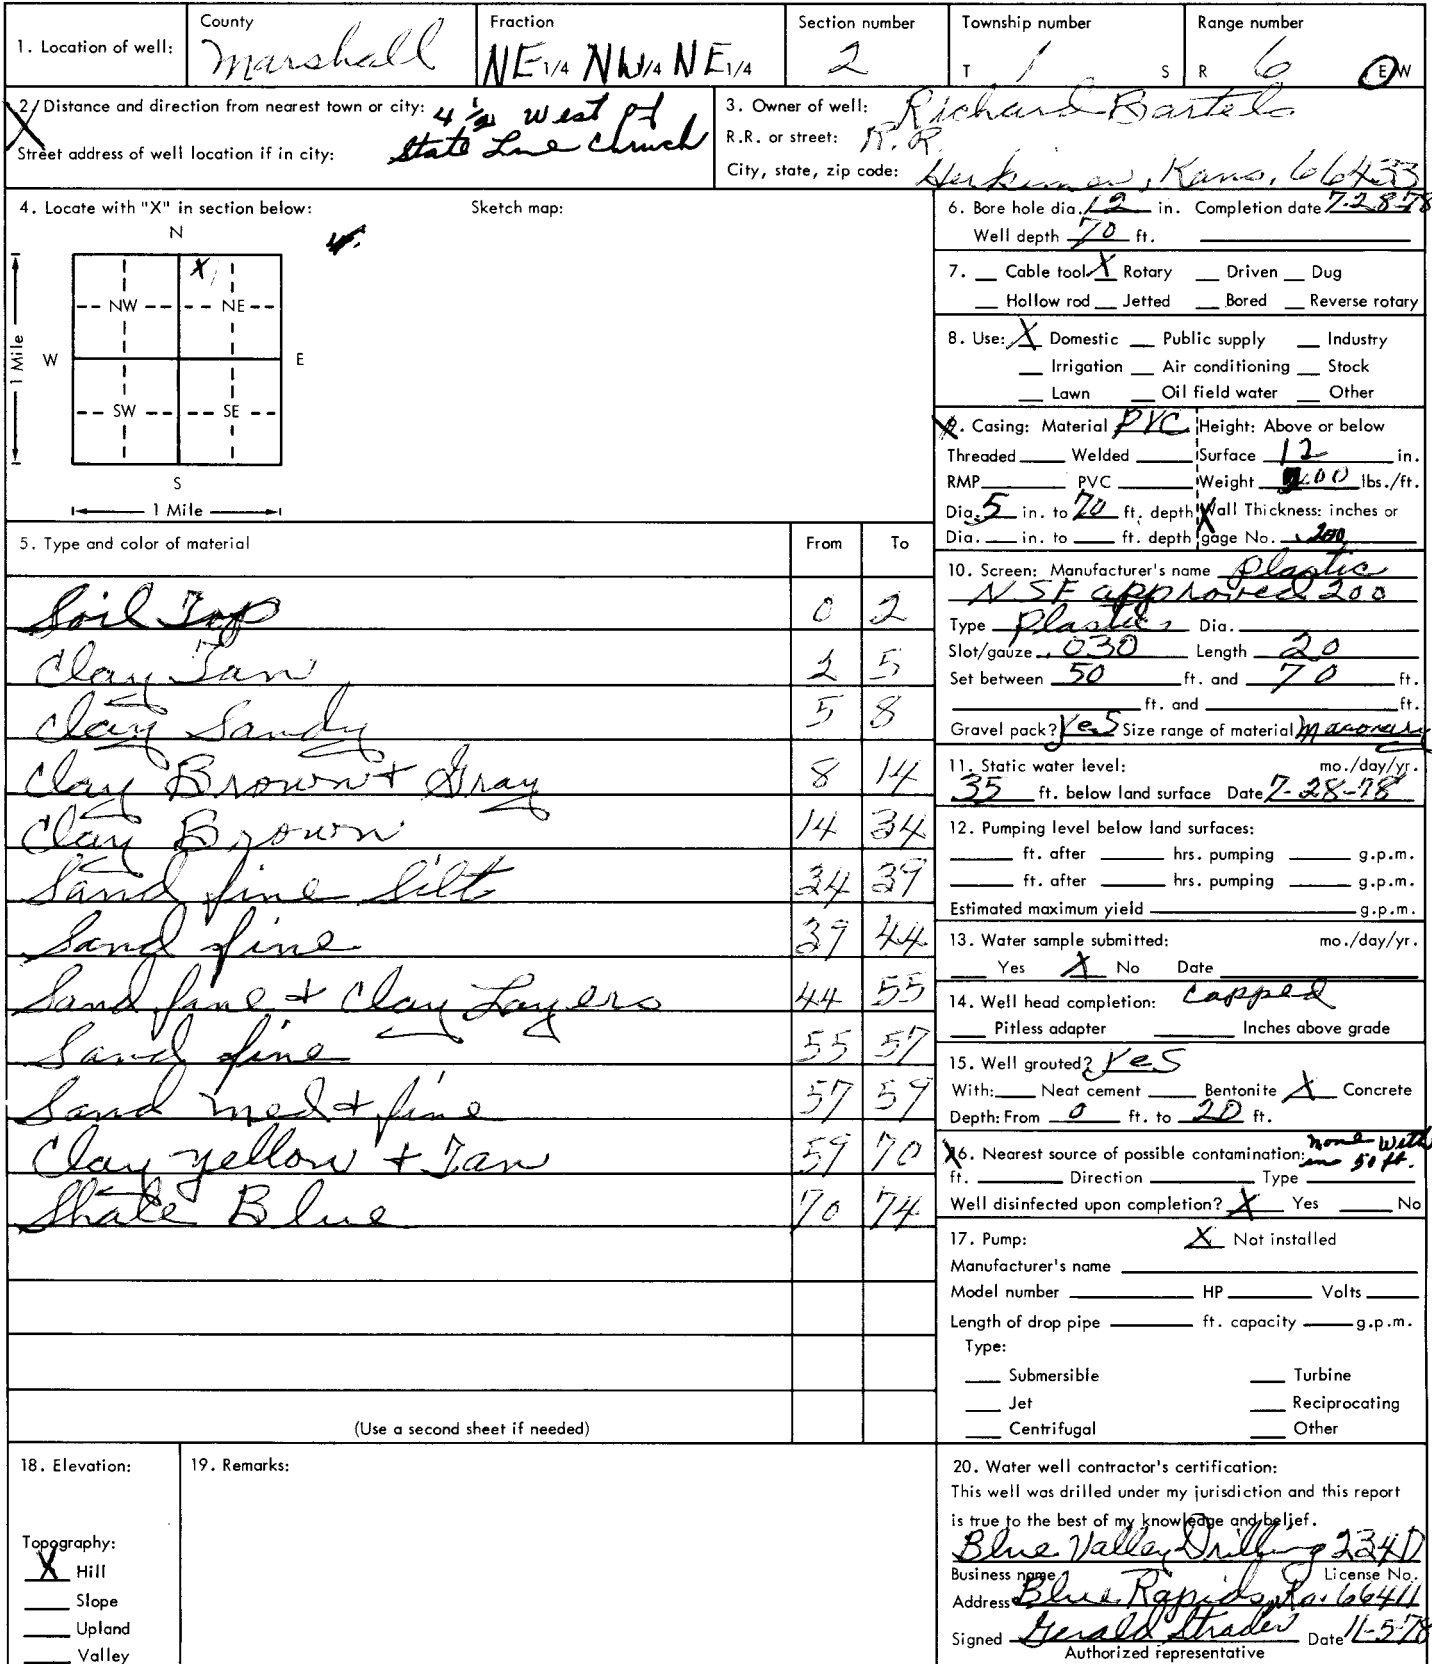 1. Location of well: County Marshall Fraction NE 1/4 NW 1/4 NE 1/4 Section number 2 Township number T 1 S Range number R 6 E W
2. Distance and direction from nearest town or city: 4 1/2 West of
State Line Chruch
Street address of well location if in city:
3. Owner of well: Richard Bartels
R.R. or street: R.R.
City, state, zip code: Herkimer, Kans, 66433
4. Locate with "X" in section below: Sketch map:
N
X
NW NE
W E
1 Mile
SW SE
S
1 Mile
5. Type and color of material From To
Soil Top 0 2
Clay Tan 2 5
Clay Sandy 5 8
Clay Brown + Gray 8 14
Clay Brown 14 34
Sand fine Silt 34 39
Sand fine 39 44
Sand fine + Clay Layers 44 55
Sand fine 55 57
Sand med + fine 57 59
Clay yellow + Tan 59 70
Shale Blue 70 74
(Use a second sheet if needed)
6. Bore hole dia. 12 in. Completion date 7-28-78
Well depth 70 ft.
7. Cable tool X Rotary Driven Dug
Hollow rod Jetted Bored Reverse rotary
8. Use: X Domestic Public supply Industry
Irrigation Air conditioning Stock
Lawn Oil field water Other
9. Casing: Material PVC Height: Above or below
Threaded Welded Surface 12 in.
RMP PVC Weight lbs./ft.
Dia. 5 in. to 70 ft. depth Wall Thickness: inches or
Dia. in. to ft. depth gage No. .200
10. Screen: Manufacturer's name Plastic
NSF approved 200
Type Plastic Dia.
Slot/gauze .030 Length 20
Set between 50 ft. and 70 ft.
ft. and ft.
Gravel pack? Yes Size range of material
11. Static water level: mo./day/yr.
35 ft. below land surface Date 7-28-78
12. Pumping level below land surfaces:
ft. after hrs. pumping g.p.m.
ft. after hrs. pumping g.p.m.
Estimated maximum yield g.p.m.
13. Water sample submitted: mo./day/yr.
Yes X No Date
14. Well head completion: Capped
Pitless adapter Inches above grade
15. Well grouted? Yes
With: Neat cement Bentonite X Concrete
Depth: From 0 ft. to 20 ft.
16. Nearest source of possible contamination: none With
in 50 ft.
ft. Direction Type
Well disinfected upon completion? X Yes No
17. Pump: X Not installed
Manufacturer's name
Model number HP Volts
Length of drop pipe ft. capacity g.p.m.
Type:
Submersible Turbine
Jet Reciprocating
Centrifugal Other
18. Elevation:
Topography:
X Hill
Slope
Upland
Valley
19. Remarks:
20. Water well contractor's certification:
This well was drilled under my jurisdiction and this report
is true to the best of my knowledge and belief.
Blue Valley Drilling 234D
Business name License No.
Address Blue Rapids, Ka. 66411
Signed Gerald Strader Date 11-5-78
Authorized representative